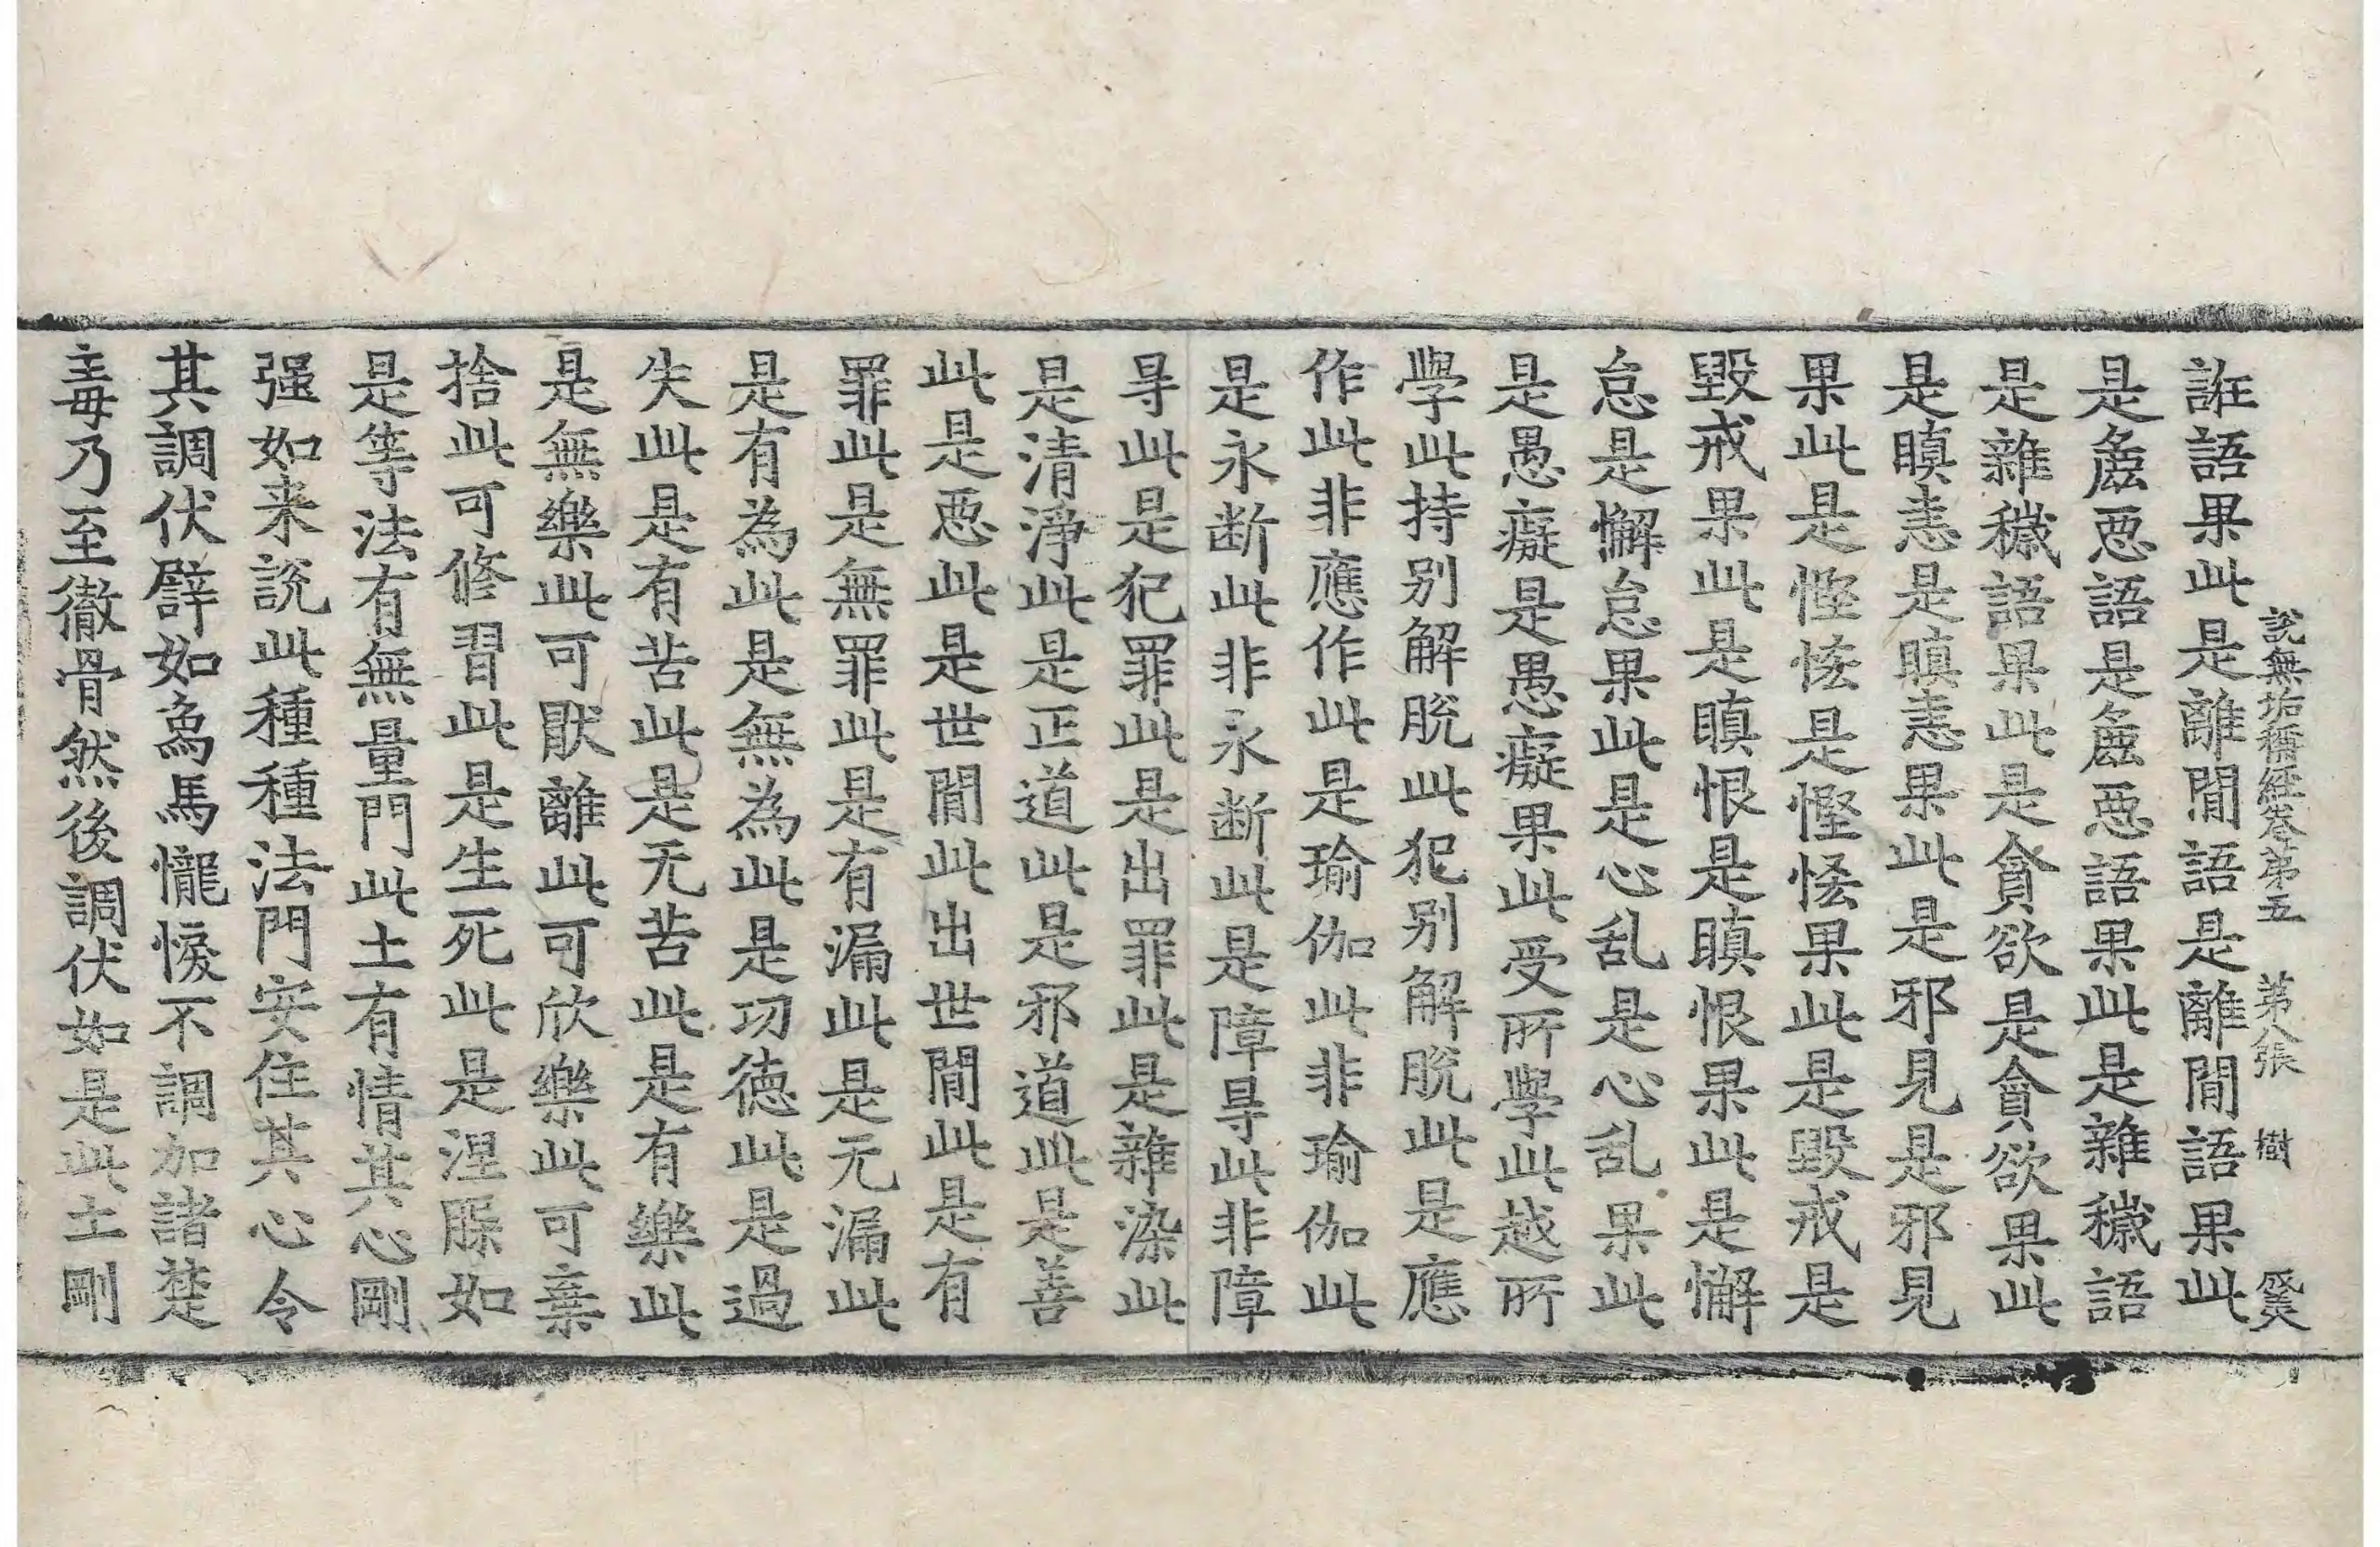 說無垢稱經卷第五　第八張　樹
誑語果此是離間語是離間語果此
是麁惡語是麁惡語果此是雜穢語
是雜穢語果此是貪欲是貪欲果此
是瞋恚是瞋恚果此是邪見是邪見
果此是慳悋是慳悋果此是毀戒是
毀戒果此是瞋恨是瞋恨果此是懈
怠是懈怠果此是心乱是心乱果此
是愚癡是愚癡果此受所學此越所
學此持別解脫此犯別解脫此是應
作此非應作此是瑜伽此非瑜伽此
是永断此非永断此是障㝵此非障
㝵此是犯罪此是出罪此是雜染此
是清淨此是正道此是邪道此是善
此是惡此是世間此出世間此是有
罪此是無罪此是有漏此是无漏此
是有為此是無為此是功德此是過
失此是有苦此是无苦此是有樂此
是無樂此可猒離此可欣樂此可棄
捨此可修習此是生死此是涅槃如
是等法有無量門此土有情其心剛
强如来說此種種法門安住其心令
其調伏譬如象馬𢤱悷不調加諸楚
毒乃至徹骨然後調伏如是此土剛